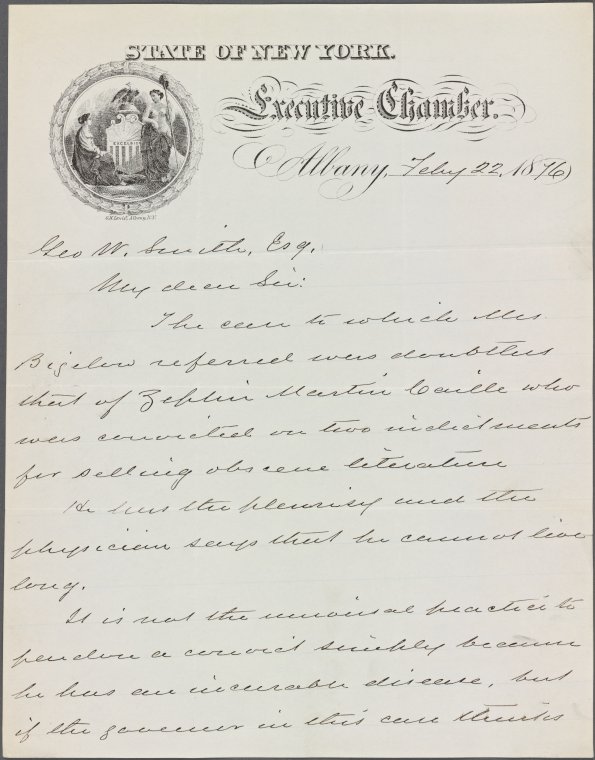 STATE OF NEW YORK.
Executive Chamber.
EXCELSIOR
Albany, Feby 22, 1876
Geo W. Smith, Esq.
My dear Sir:
The case to which Mrs
Bigelow referred was doubtless
that of Zephin Martin Caille who
was convicted on two indictments
for selling obscene literature
He has the pleurisy and the
physician says that he cannot live
long.
It is not the universal practice to
pardon a convict simply because
he has an incurable disease, but
if the governor in this case thinks